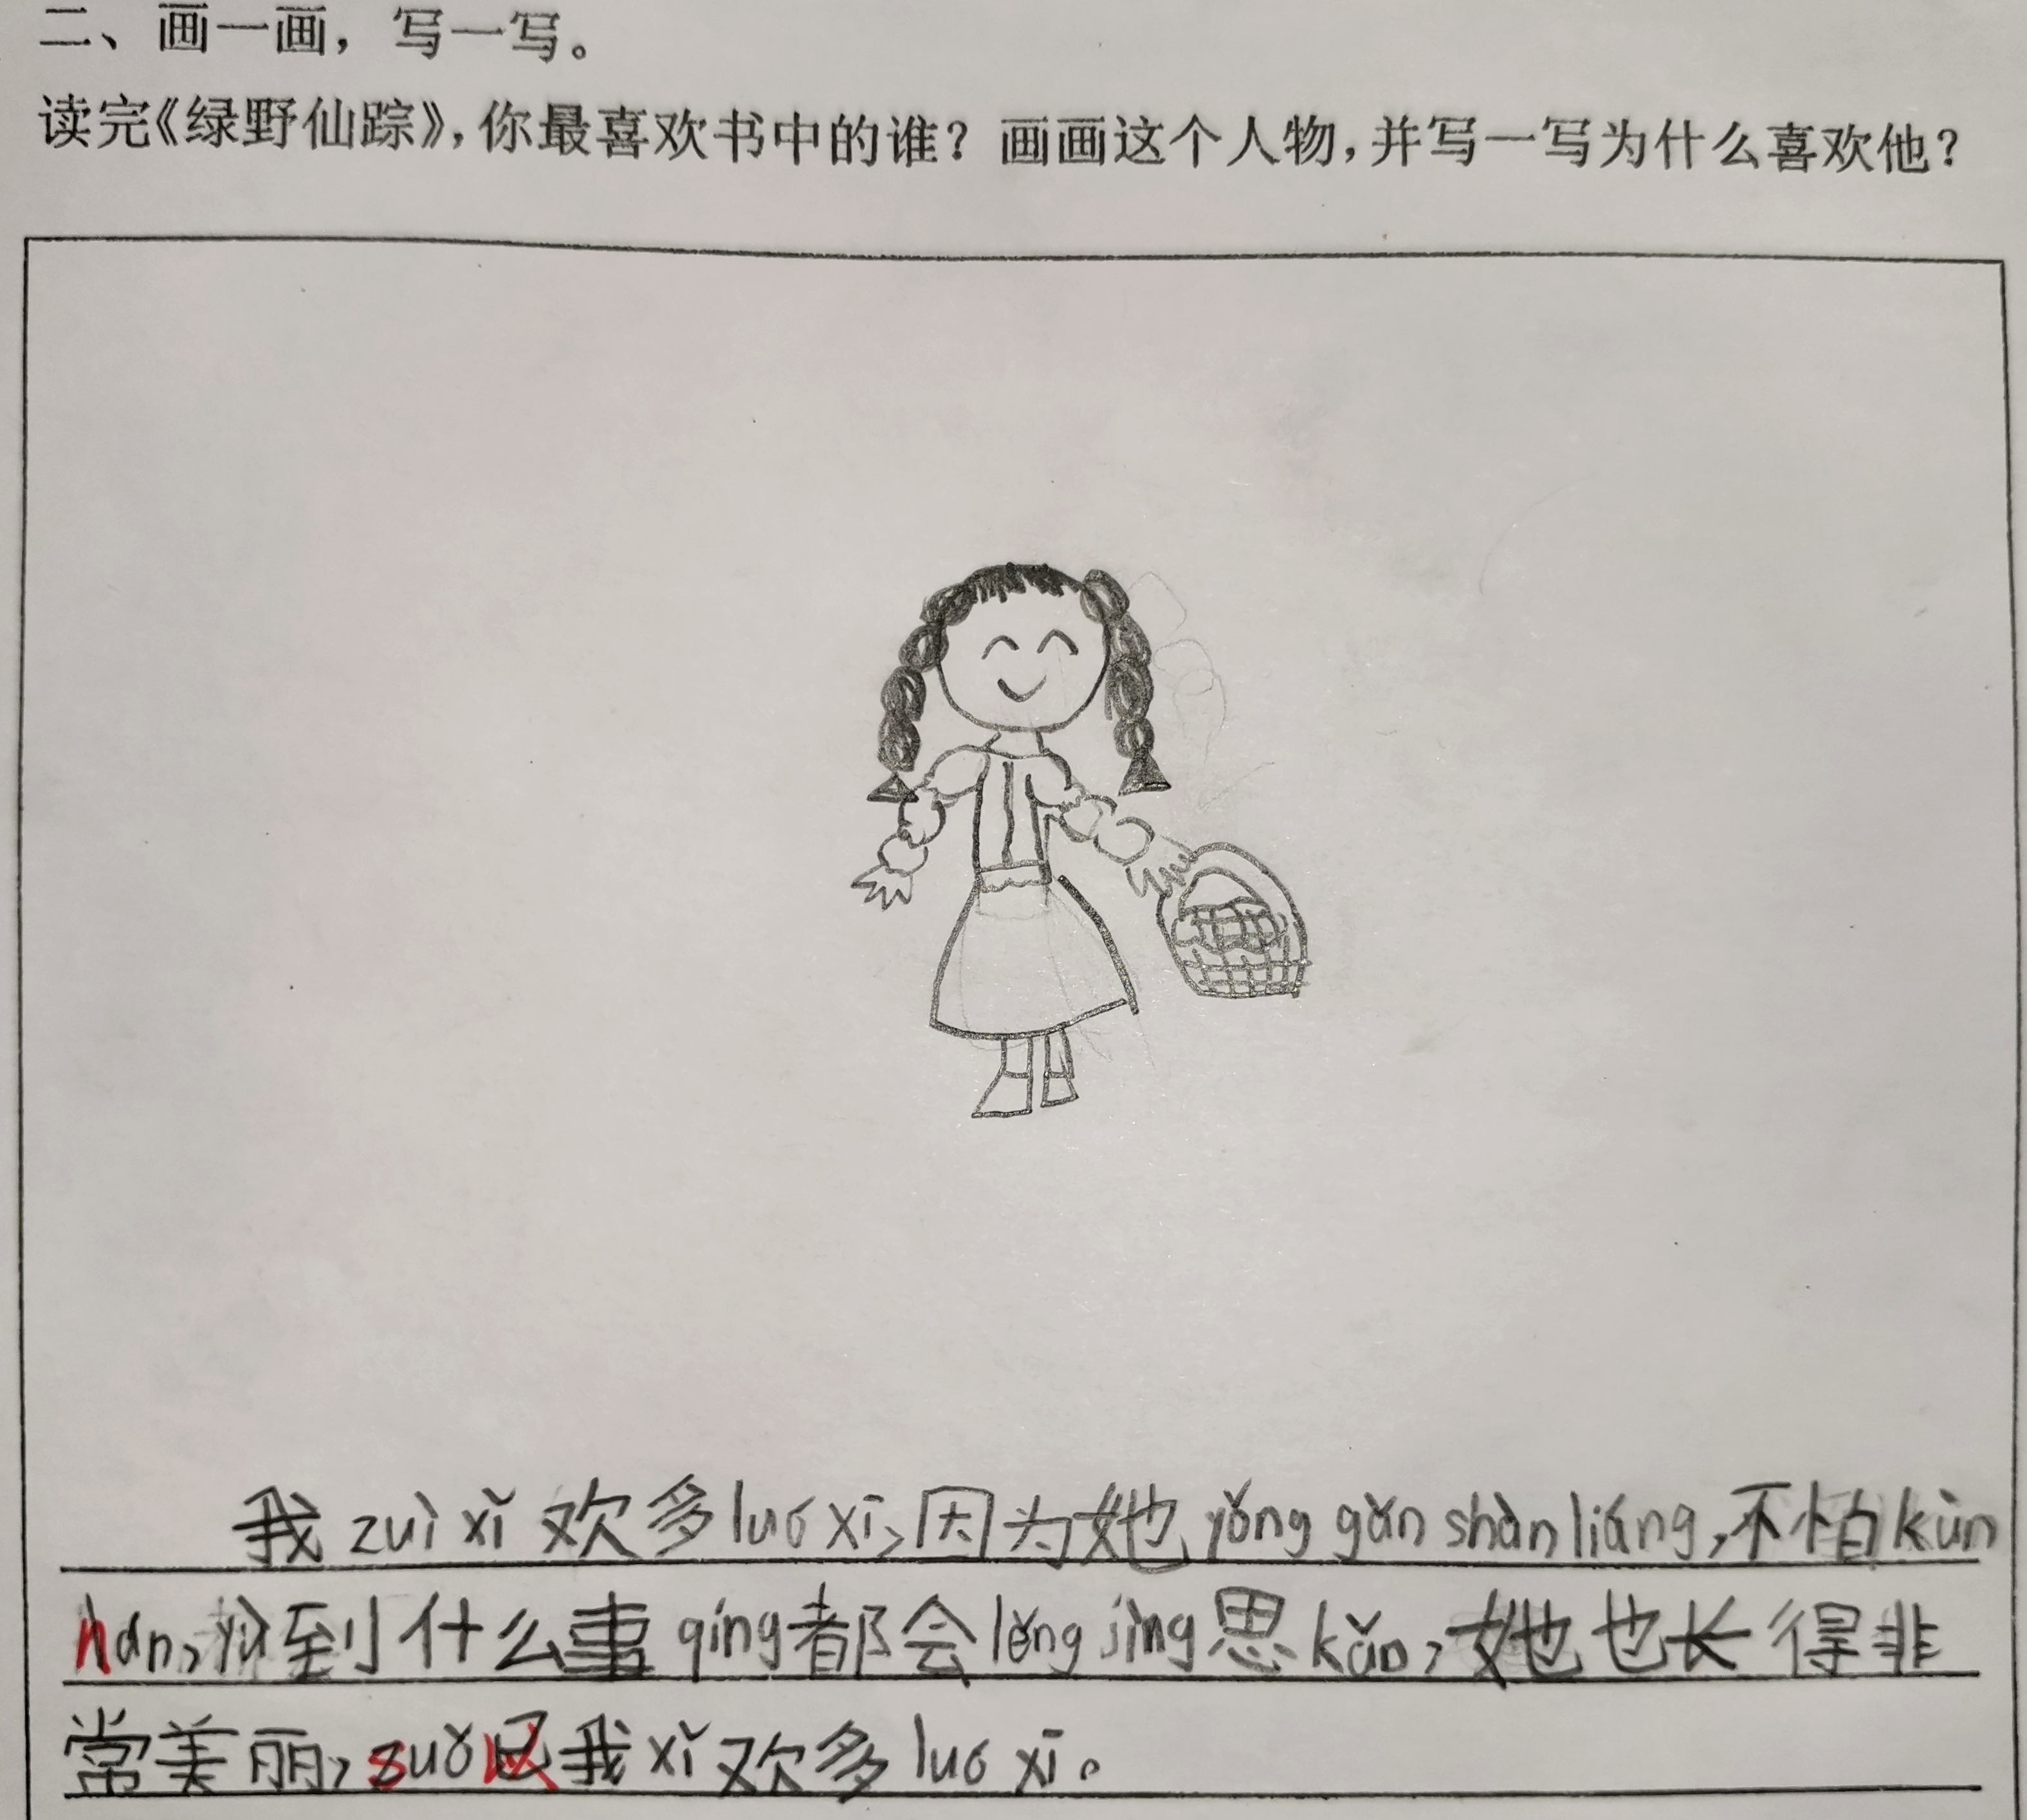 二、画一画，写一写。
读完《绿野仙踪》，你最喜欢书中的谁？画画这个人物，并写一写为什么喜欢他？
我zuì xǐ欢多luó xī，因为她yǒng gǎn shàn liáng，不怕kùn
nan，yù到什么事qíng都会lěng jìng思kǎo，她也长得非
常美丽，suǒ以我xǐ欢多luó xī。